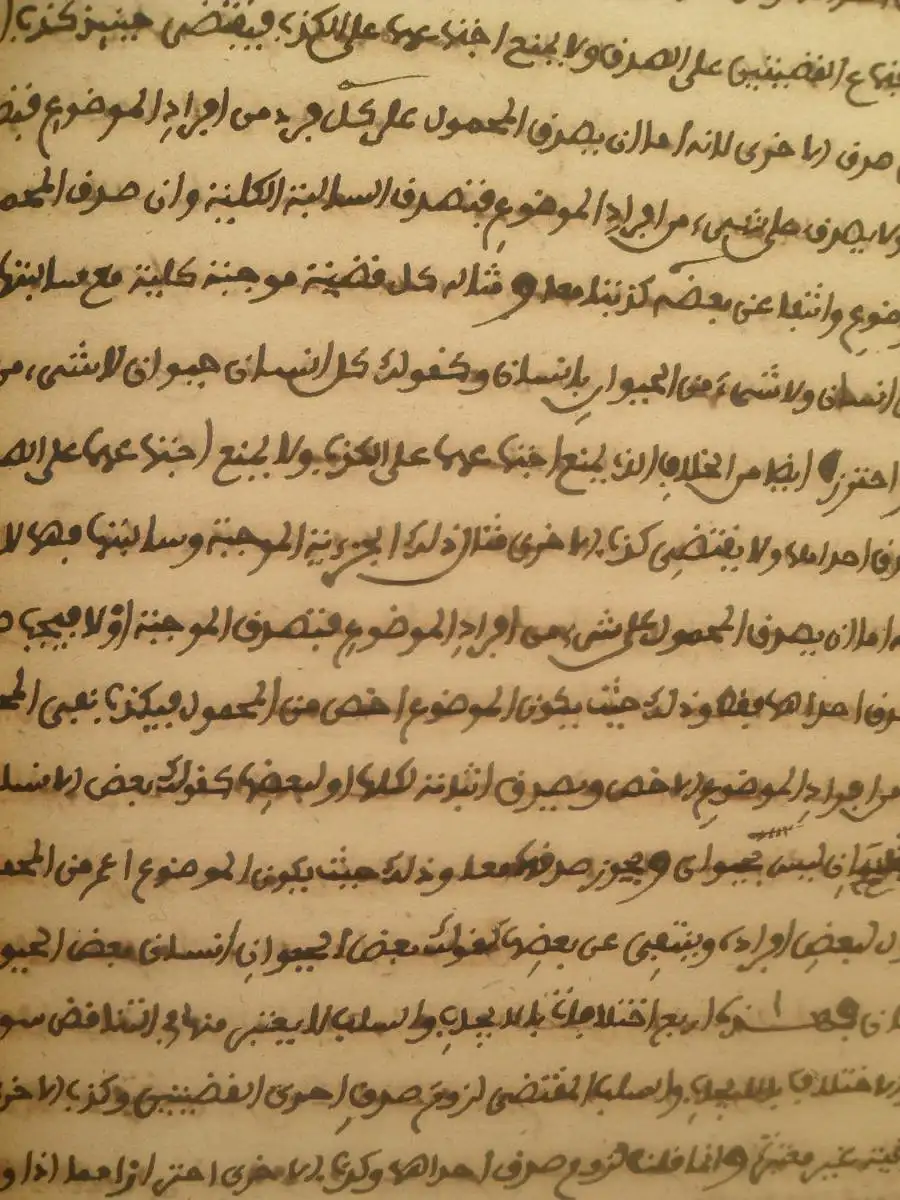 اجتماع القضيتين على الصدق ولا يمنع اجتماعهما على الكذب فيقتضي حينئذ كذب
صدق الاخرى لانه اما ان يصدق المحمول على كل فرد من افراد الموضوع فتصد
ولا يصدق على شيء من افراد الموضوع فتصدق السالبة الكلية وان صدق المحمو
وضوع وانتفا عن بعضه كذبتا معا ومثاله كل قضية موجبة كلية مع سالبتها
انسان ولا شيء من الحيوان بانسان وكقولك كل انسان حيوان لا شيء من
احترز ايضا من اختلاف الذي يمنع اجتماعهما على الكذب ولا يمنع اجتماعهما على الصد
صدق احداهما ولا يقتضي كذب الاخرى مثال ذلك الجزئية الموجبة وسالبتها فهما لا
اما ان يصدق المحمول على شيء من افراد الموضوع فتصدق الموجبة او لا فيجب
صدق احداهما فقط وذلك حيث يكون الموضوع اخص من المحمول فيكذب نفي المحمو
من افراد الموضوع الاخص ويصدق اثباته لكلها او لبعضها كقولك بعض الانسا
ليس بحيوان ويجوز صدقهما معا وذلك حيث يكون الموضوع اعم من المحمو
لبعض افراده وينتفي عن بعضها كقولك بعض الحيوان انسان بعض الحيو
اربع اختلافات بالايجاب والسلب لا يعتبر منها في التناقض سو
الاختلاف بالايجاب والسلب المقتضي لزوم صدق احدى القضيتين وكذب الاخر
غير معتبرة وانما قلنا لزوم صدق احداهما وكذب الاخرى احترازا مما اذا و